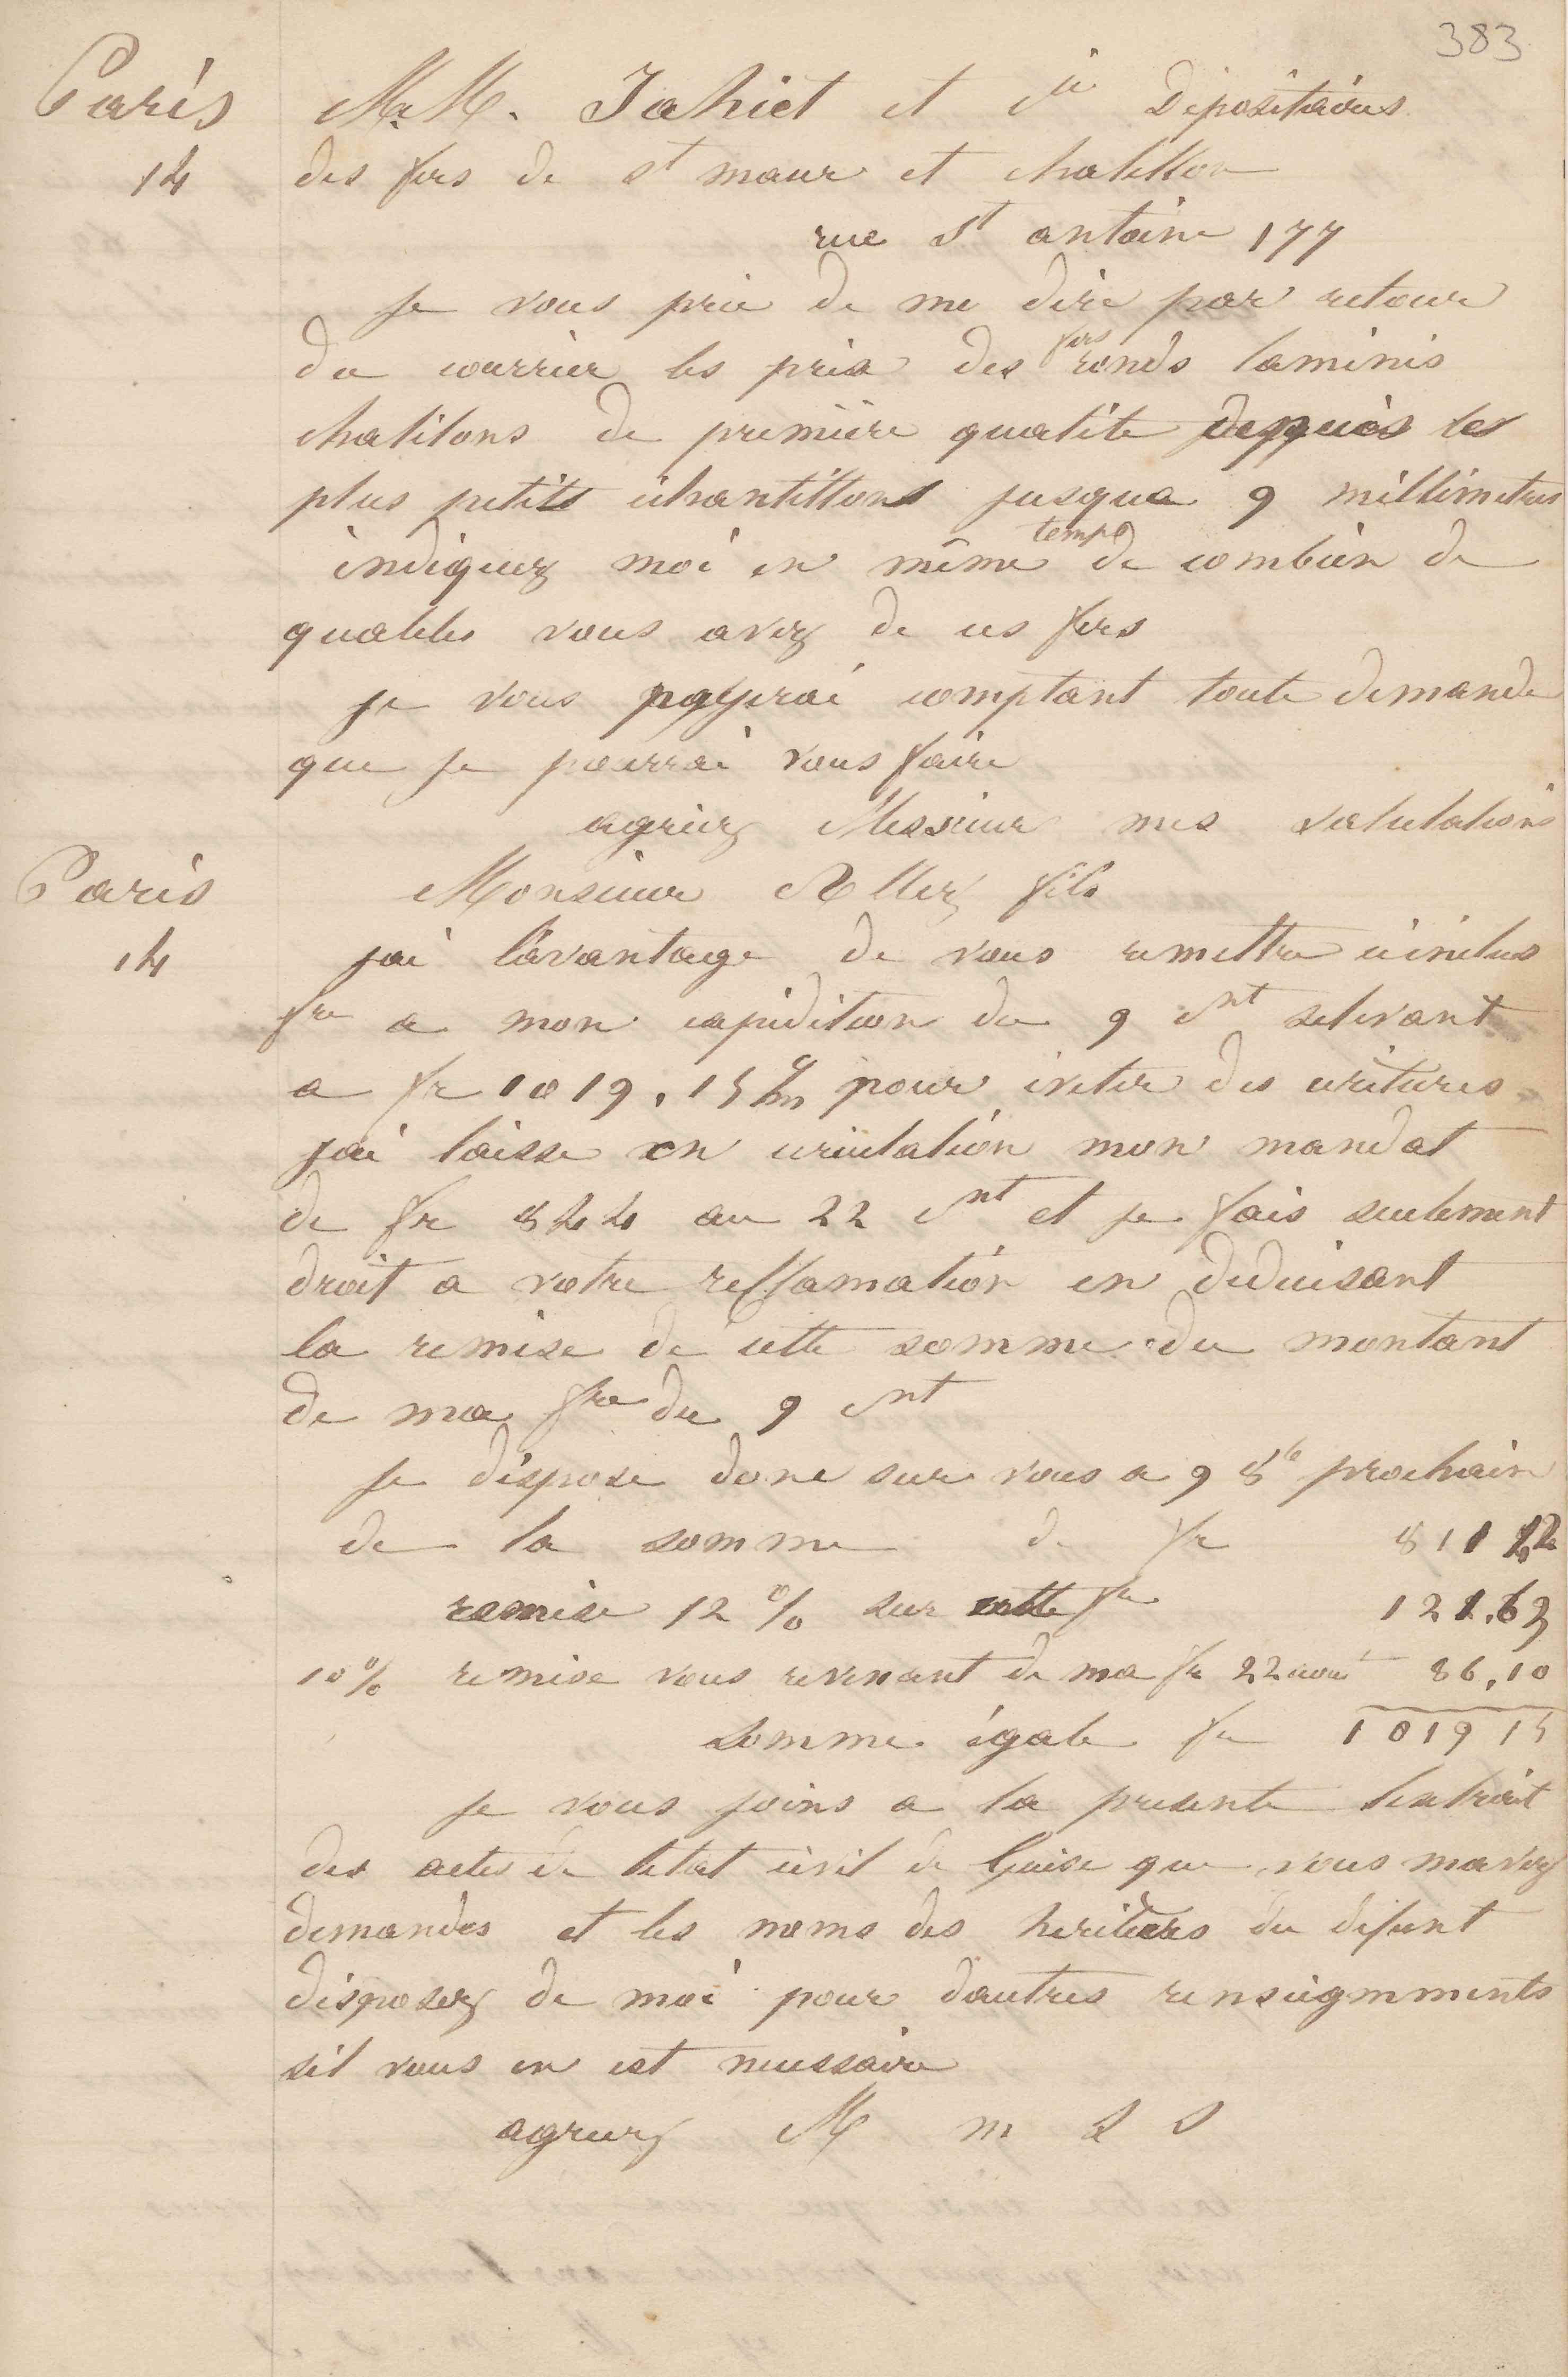 383
Paris
14
M.M. Jahiet et Cie Dépositaires
des fers de St maur et chatillon
rue St antoine 177
je vous prie de me dire par retour
du courrier les prix des fers ronds laminés
chatilons de première qualité depuis les
plus petits échantillons jusqua 9 millimetres
indiquez moi en même temps de combien de
qualités vous avez de ces fers
je vous payerai comptant toute demande
que je pourrai vous faire
agréez Messieur mes salutations
Paris
14
Monsieur Allez fils
jai lavantage de vous remettre cinclus
fre a mon expédition du 9 Cnt selevant
a fr 1019,15 pour éviter des critures
jai laisse en circulation mon mandat
de fr 844 au 22 Cnt et je fais seulement
droit a votre reclamation en déduisant
la remise de cette somme du montant
de ma fre du 9 Cnt
je dispose donc sur vous a 9 8b prochain
de la somme de fr 811 42
remise 12 % sur cette fre 121.63
10 % remise vous revenant de ma fr 22 aout 86,10
somme égale fr 1019 15
je vous joins a la presente lextrait
des actes de letat civil de Guise que vous mavez
demandés et les noms des heritiers du défunt
disposez de moi pour dautres renseignements
sil vous en est necessaire
agreez M m s s